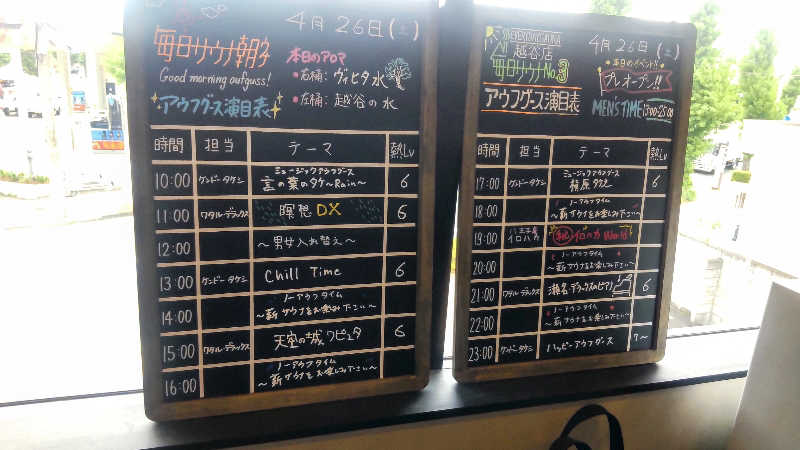 毎日サウナ朝子
Good morning aufguss!
アウフグース演目表
4月26日(土)
本日のアロマ
・右桶: ヴィヒタ水
・左桶: 越谷の水
時間 担当 テーマ 熱Lv
10:00 ケンドータケシ ミュージックアウフグース 言の葉のタケ~Rain~ 6
11:00 ワタル・デラックス 瞑想DX 6
12:00 ~男女入れ替え~
13:00 ケンドータケシ Chill Time 6
14:00 ノーアウフタイム ~薪サウナをお楽しみ下さい~
15:00 ワタル・デラックス 天空の城ラピュタ 6
16:00 ノーアウフタイム ~薪サウナをお楽しみ下さい~
越谷店
毎日サウナNo.3
アウフグース演目表
4月26日(土)
本日のイベント!!
プレオープン!!
MEN'S TIME 13:00-25:00
時間 担当 テーマ 熱Lv
17:00 ケンドータケシ ミュージックアウフグース 6
18:00 ノーアウフタイム ~薪サウナをお楽しみ下さい~
19:00 八王子店 イロハカ イロハカ World
20:00 ノーアウフタイム ~薪サウナをお楽しみ下さい~
21:00 ワタル・デラックス 瀬名デラックスのピアノ 6
22:00 ノーアウフタイム ~薪サウナをお楽しみ下さい~
23:00 ケンドータケシ ハッピーアウフグース 7~